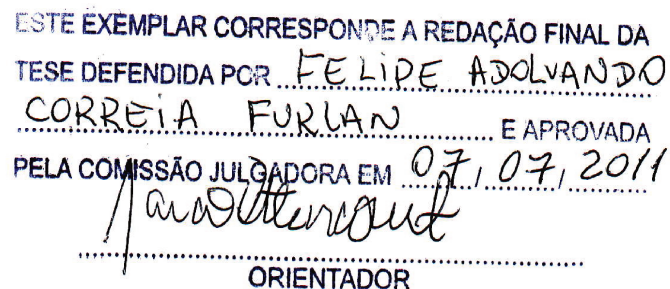 ESTE EXEMPLAR CORRESPONDE A REDAÇÃO FINAL DA
TESE DEFENDIDA POR FELIPE ADOLVANDO
CORREIA FURLAN E APROVADA
PELA COMISSÃO JULGADORA EM 07, 07, 2011
ORIENTADOR